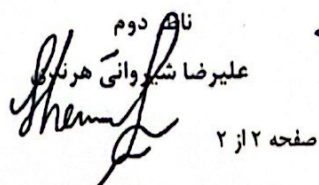 ناظر دوم
علیرضا شیروانی هرندی
صفحه ۲ از ۲